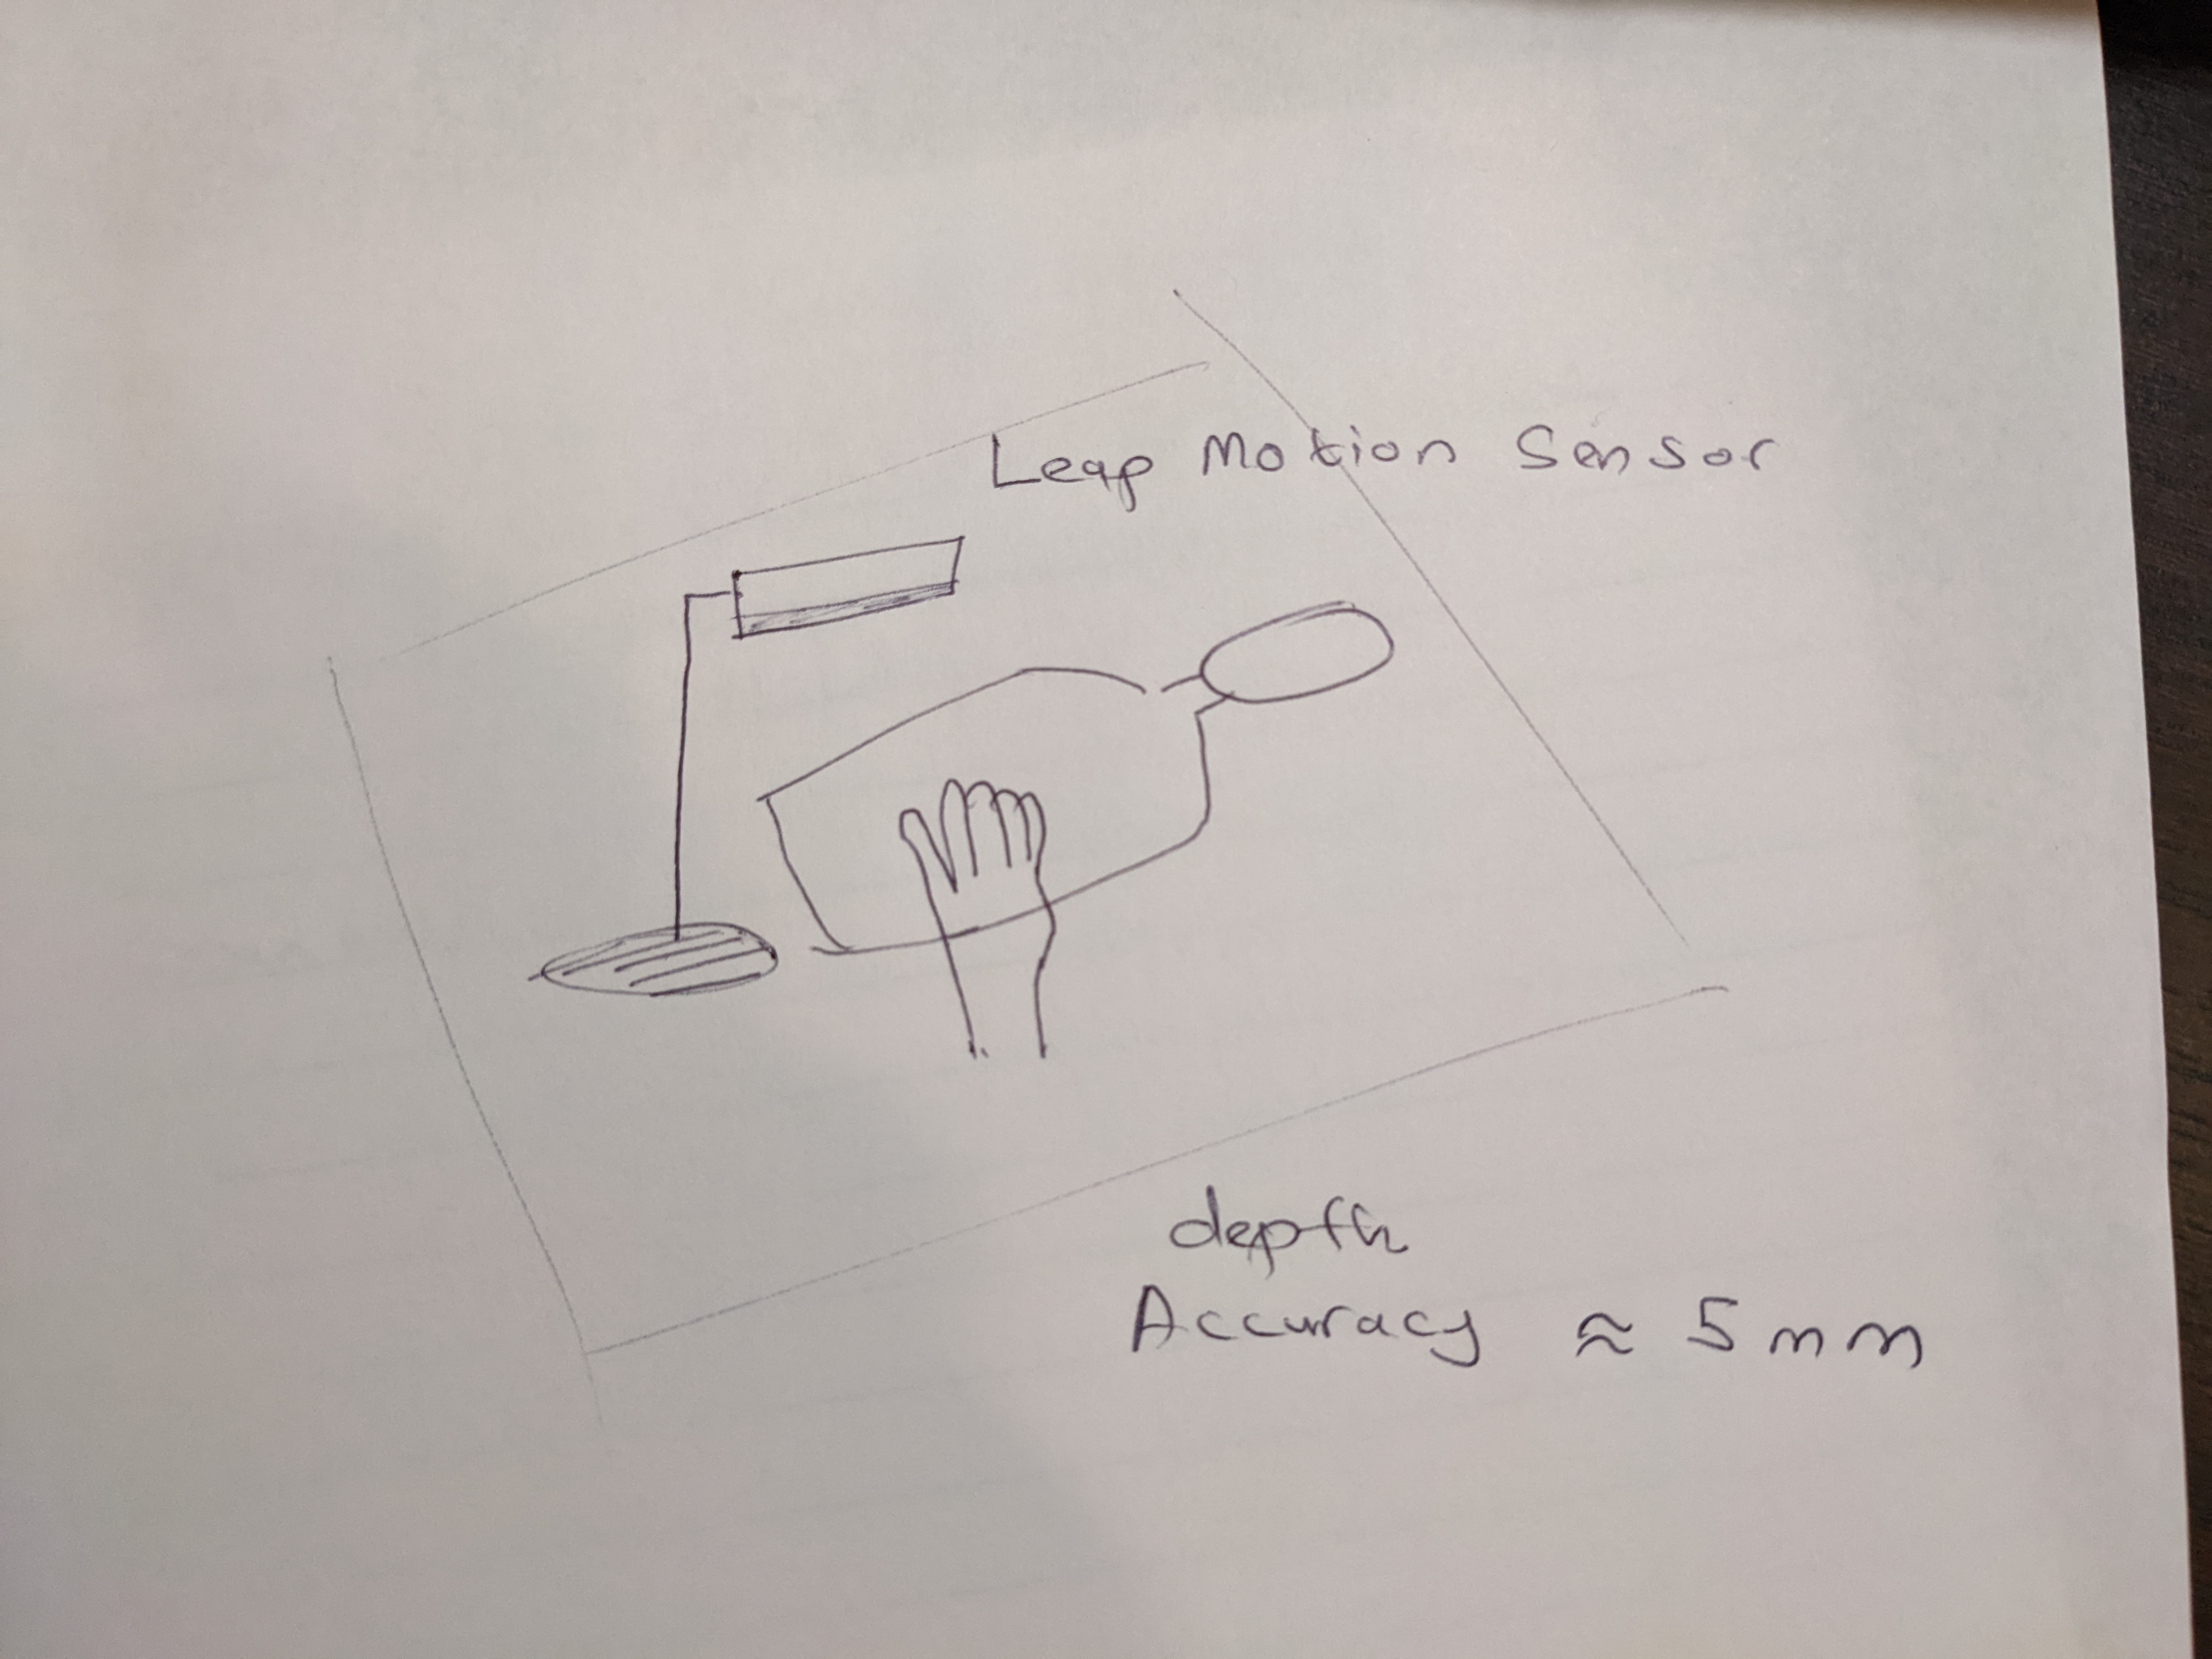 Leap Motion Sensor
depth
Accuracy ≈ 5 mm